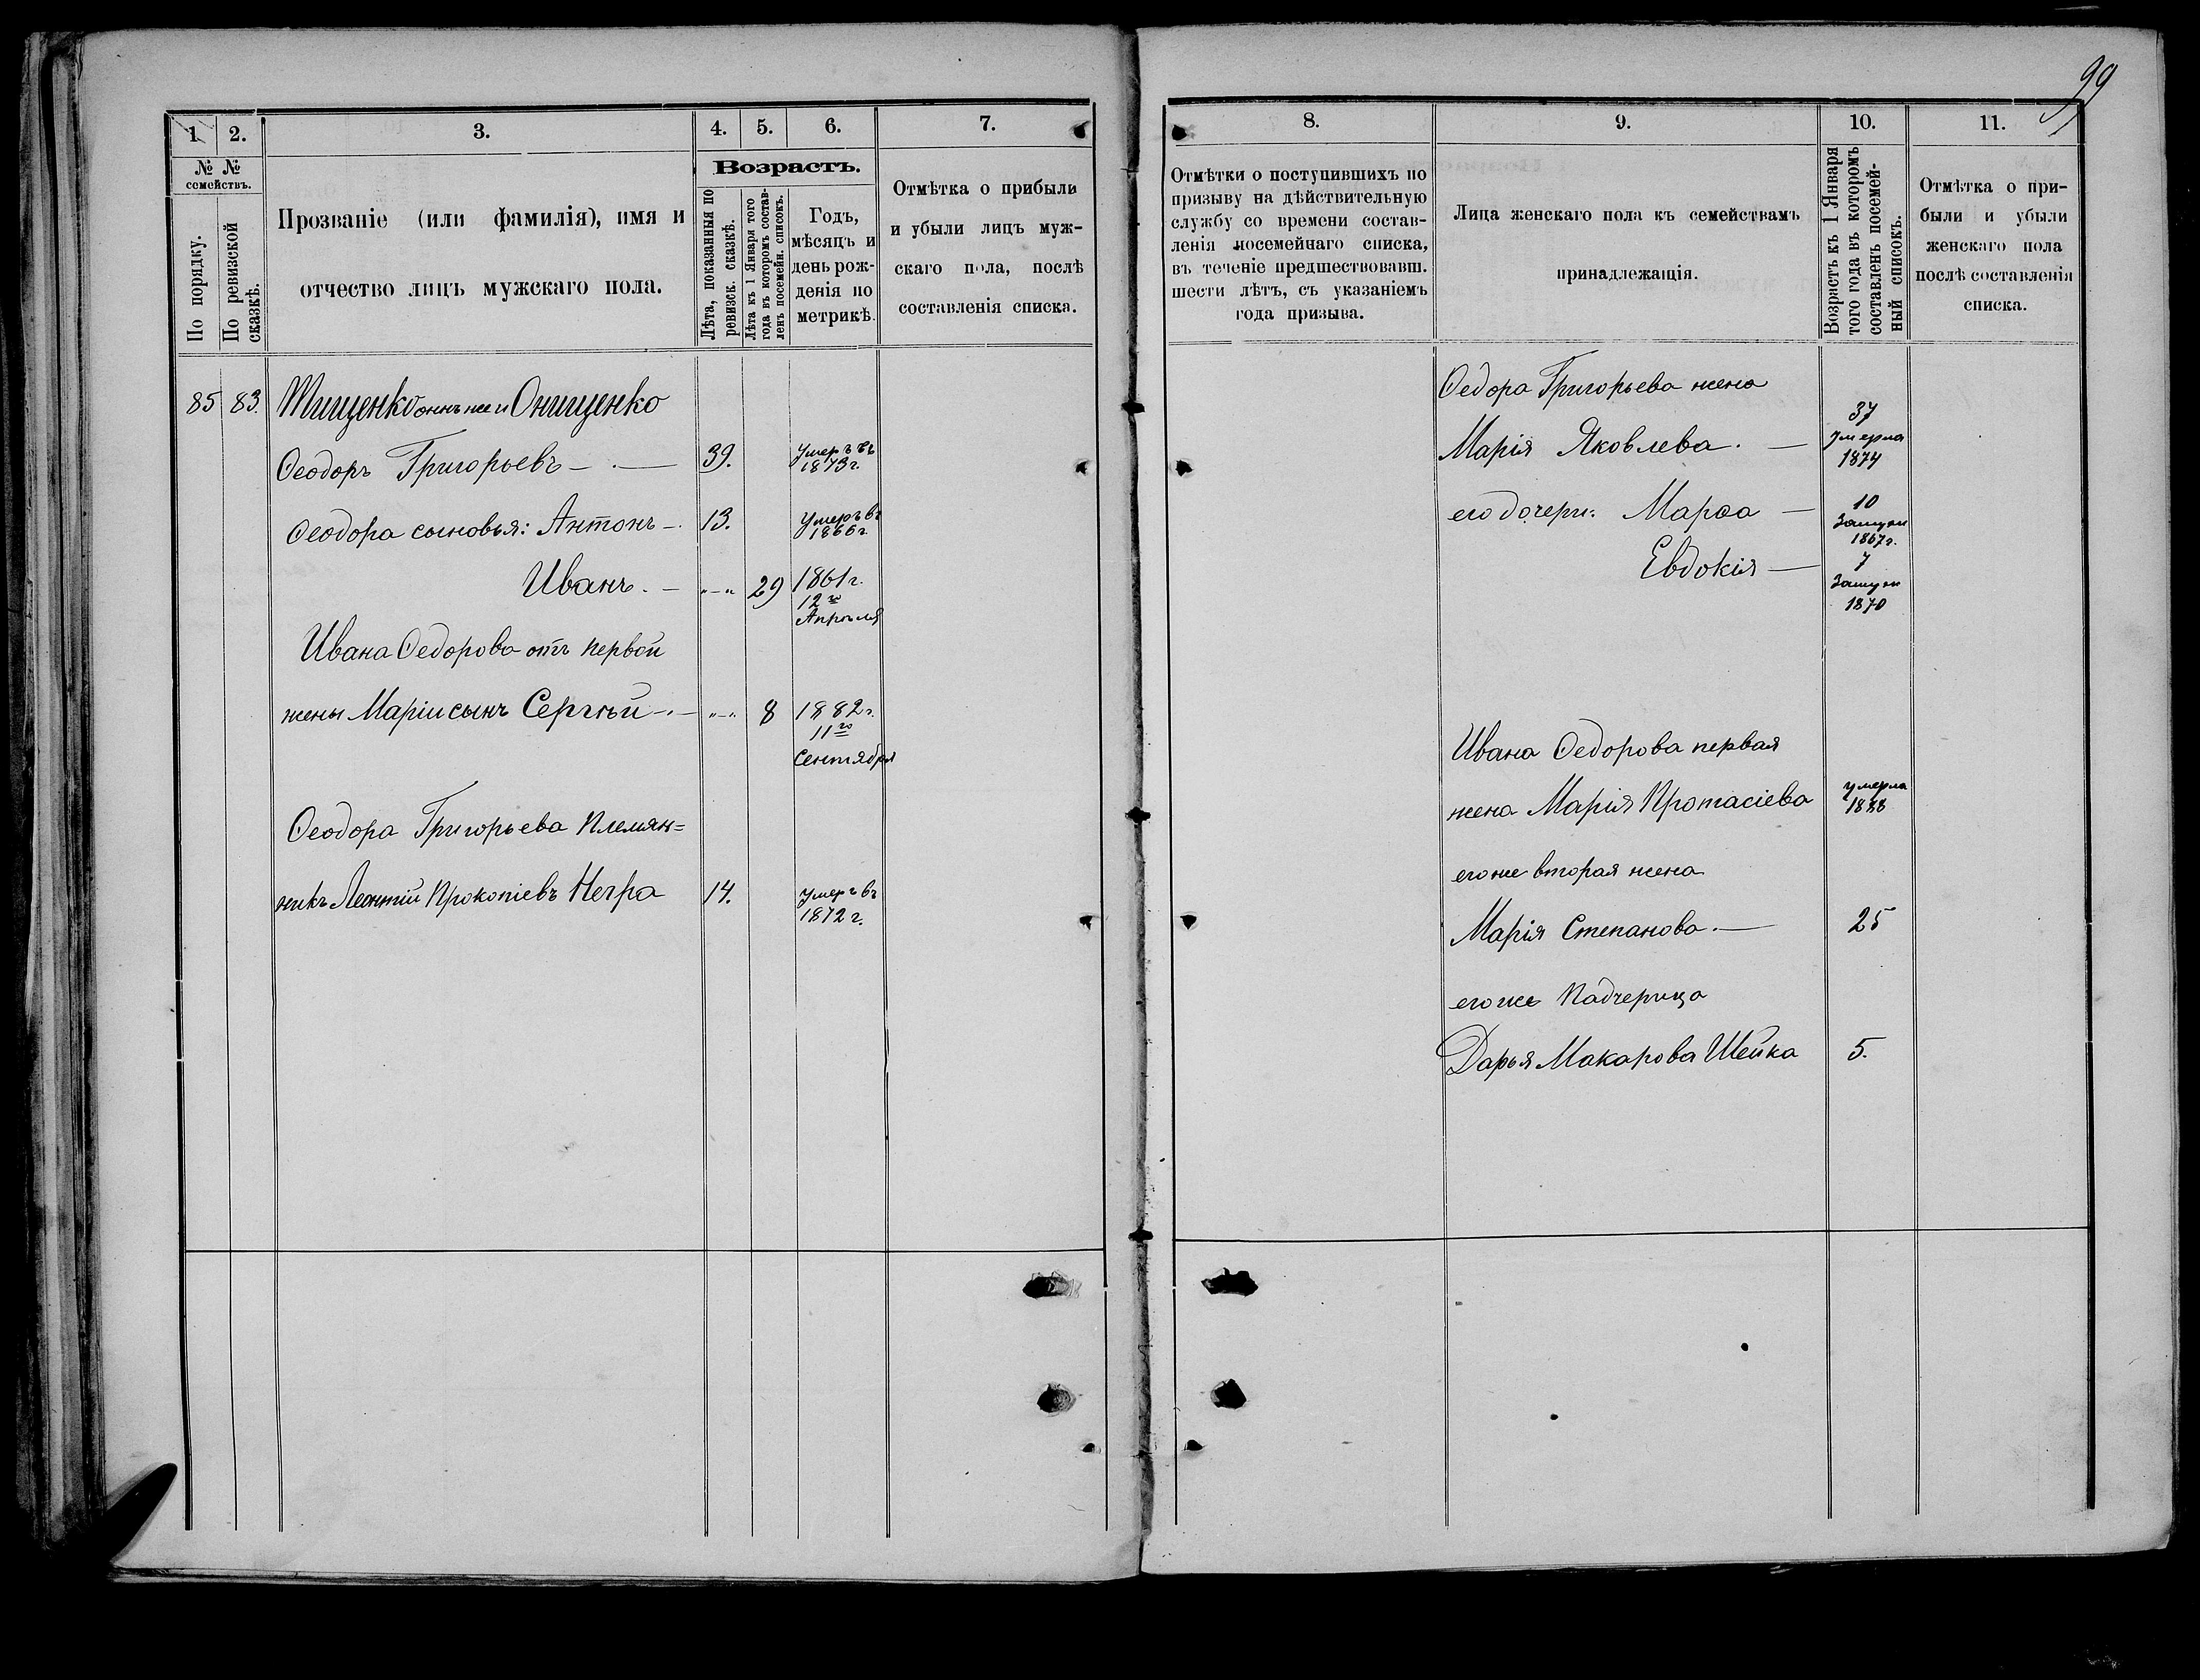 99
1. 2. 3. 4. 5. 6. 7.
№ №
семействъ.
По порядку.
По ревизской
сказкѣ.
Прозваніе (или фамилія), имя и
отчество лицъ мужскаго пола.
Возрастъ.
Лѣта, показанныя по
ревизск. сказкѣ.
Лѣта къ 1 Января того
года въ которомъ состав-
ленъ посемейн. списокъ.
Годъ,
мѣсяцъ и
день рож-
денія по
метрикѣ.
Отмѣтка о прибыли
и убыли лицъ муж-
скаго пола, послѣ
составленія списка.
85 83. Тищенко онъ же и Онищенко
Ѳеодоръ Григорьевъ — 39. Умеръ въ
1873 г.
Ѳеодора сыновья: Антонъ — 13. Умеръ въ
1866 г.
Иванъ. — „—„ 29 1861 г.
12го
Апрѣля
Ивана Ѳедорова отъ первой
жены Маріи сынъ Сергѣй — „—„ 8 1882 г.
11го
Сентября
Ѳеодора Григорьева племян=
никъ Леонтій Прокопіевъ Негра 14. Умеръ въ
1872 г.
8. 9. 10. 11.
Отмѣтки о поступившихъ по
призыву на дѣйствительную
службу со времени состав-
ленія посемейнаго списка,
въ теченіе предшествовавш.
шести лѣтъ, съ указаніемъ
года призыва.
Лица женскаго пола къ семействамъ
принадлежащія.
Возрастъ къ 1 Января
того года въ которомъ
составленъ посемей-
ный списокъ.
Отмѣтка о при-
были и убыли
женскаго пола
послѣ составленія
списка.
Ѳедора Григорьева жена
37
Марія Яковлева. — Умерла
1874
его дочери: Марѳа — 10
Замужъ
1867 г.
Евдокія — 7
Замужъ
1870
Ивана Ѳедорова первая
жена Марія Протасіева умерла
1888
его же вторая жена
Марія Степанова. — 25
его же Падчерица
Дарья Макарова Шейка 5.